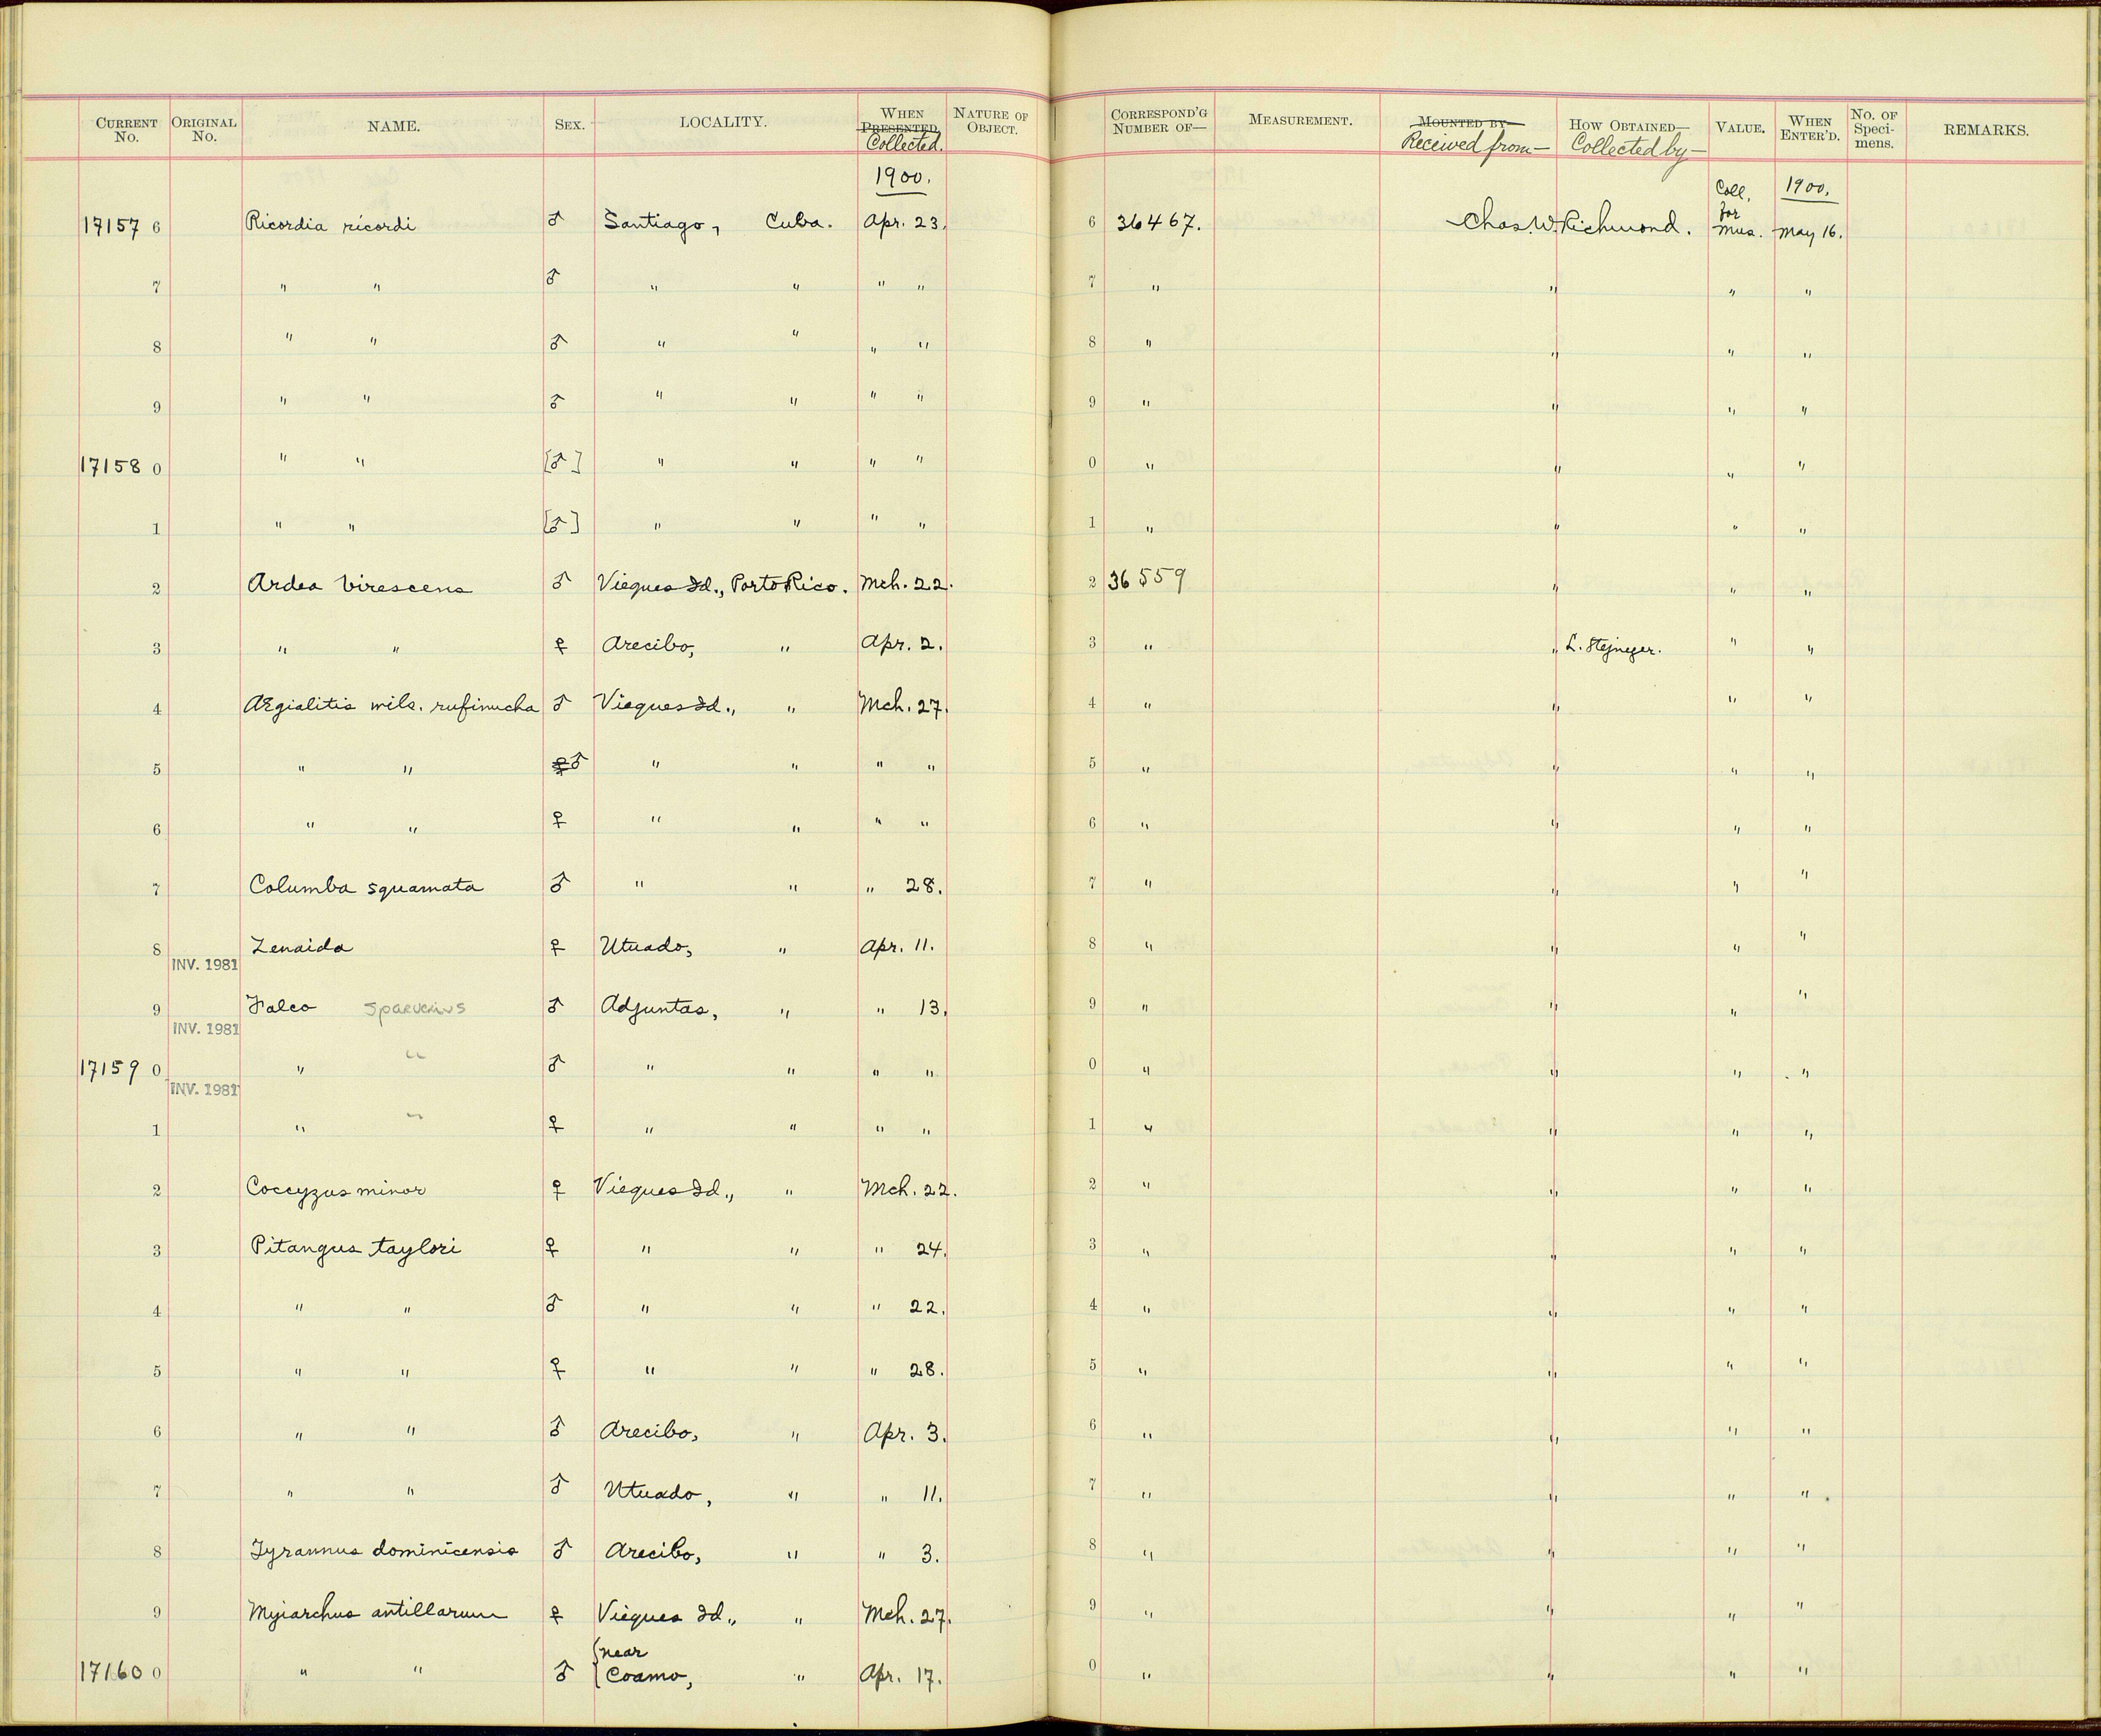 CURRENT No. ORIGINAL No. NAME. SEX. LOCALITY. WHEN PRESENTED Collected. NATURE OF OBJECT. CORRESPOND'G NUMBER OF— MEASUREMENT. MOUNTED BY— Received from— HOW OBTAINED— Collected by— VALUE. WHEN ENTER'D. No. OF Speci- mens. REMARKS.
1900. Coll. 1900.
17157 6 Ricordia ricordi ♂ Santiago, Cuba. Apr. 23. 6 36467. Chas. W. Richmond. for Mus. May 16.
7 " " ♂ " " " " 7 " " " "
8 " " ♂ " " " " 8 " " " "
9 " " ♂ " " " " 9 " " " "
17158 0 " " [♂] " " " " 0 " " " "
1 " " [♂] " " " " 1 " " " "
2 Ardea virescens ♂ Vieques Id., Porto Rico. Mch. 22. 2 36559 " " "
3 " " ♀ Arecibo, " Apr. 2. 3 " " L. Stejneger. " "
4 Ægialitis wils. rufinucha ♂ Vieques Id., " Mch. 27. 4 " " " "
5 " " ♀ ♂ " " " " 5 " " " "
6 " " ♀ " " " " 6 " " " "
7 Columba squamata ♂ " " " 28. 7 " " " "
8 INV. 1981 Zenaida ♀ Utuado, " Apr. 11. 8 " " " "
9 INV. 1981 Falco sparverius ♂ Adjuntas, " " 13. 9 " " " "
17159 0 INV. 1981 " " ♂ " " " " 0 " " " "
1 " " ♀ " " " " 1 " " " "
2 Coccyzus minor ♀ Vieques Id., " Mch. 22. 2 " " " "
3 Pitangus taylori ♀ " " " 24. 3 " " " "
4 " " ♂ " " " 22. 4 " " " "
5 " " ♀ " " " 28. 5 " " " "
6 " " ♂ Arecibo, " Apr. 3. 6 " " " "
7 " " ♂ Utuado, " " 11. 7 " " " "
8 Tyrannus dominicensis ♂ Arecibo, " " 3. 8 " " " "
9 Myiarchus antillarum ♀ Vieques Id., " Mch. 27. 9 " " " "
17160 0 " " ♂ near Coamo, " Apr. 17. 0 " " " "